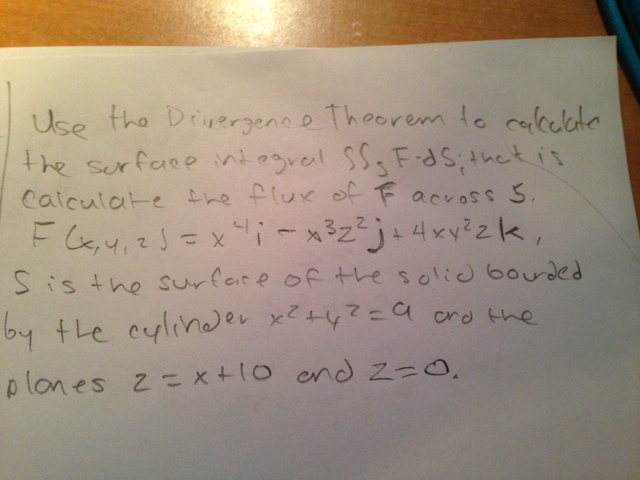 Use the Divergence Theorem to calculate
the surface integral SS_S F·dS; that is
calculate the flux of F across S.
F(x,y,z) = x⁴i - x³z²j + 4xy²zk,
S is the surface of the solid bounded
by the cylinder x²+y²=9 and the
planes z = x+10 and z=0.